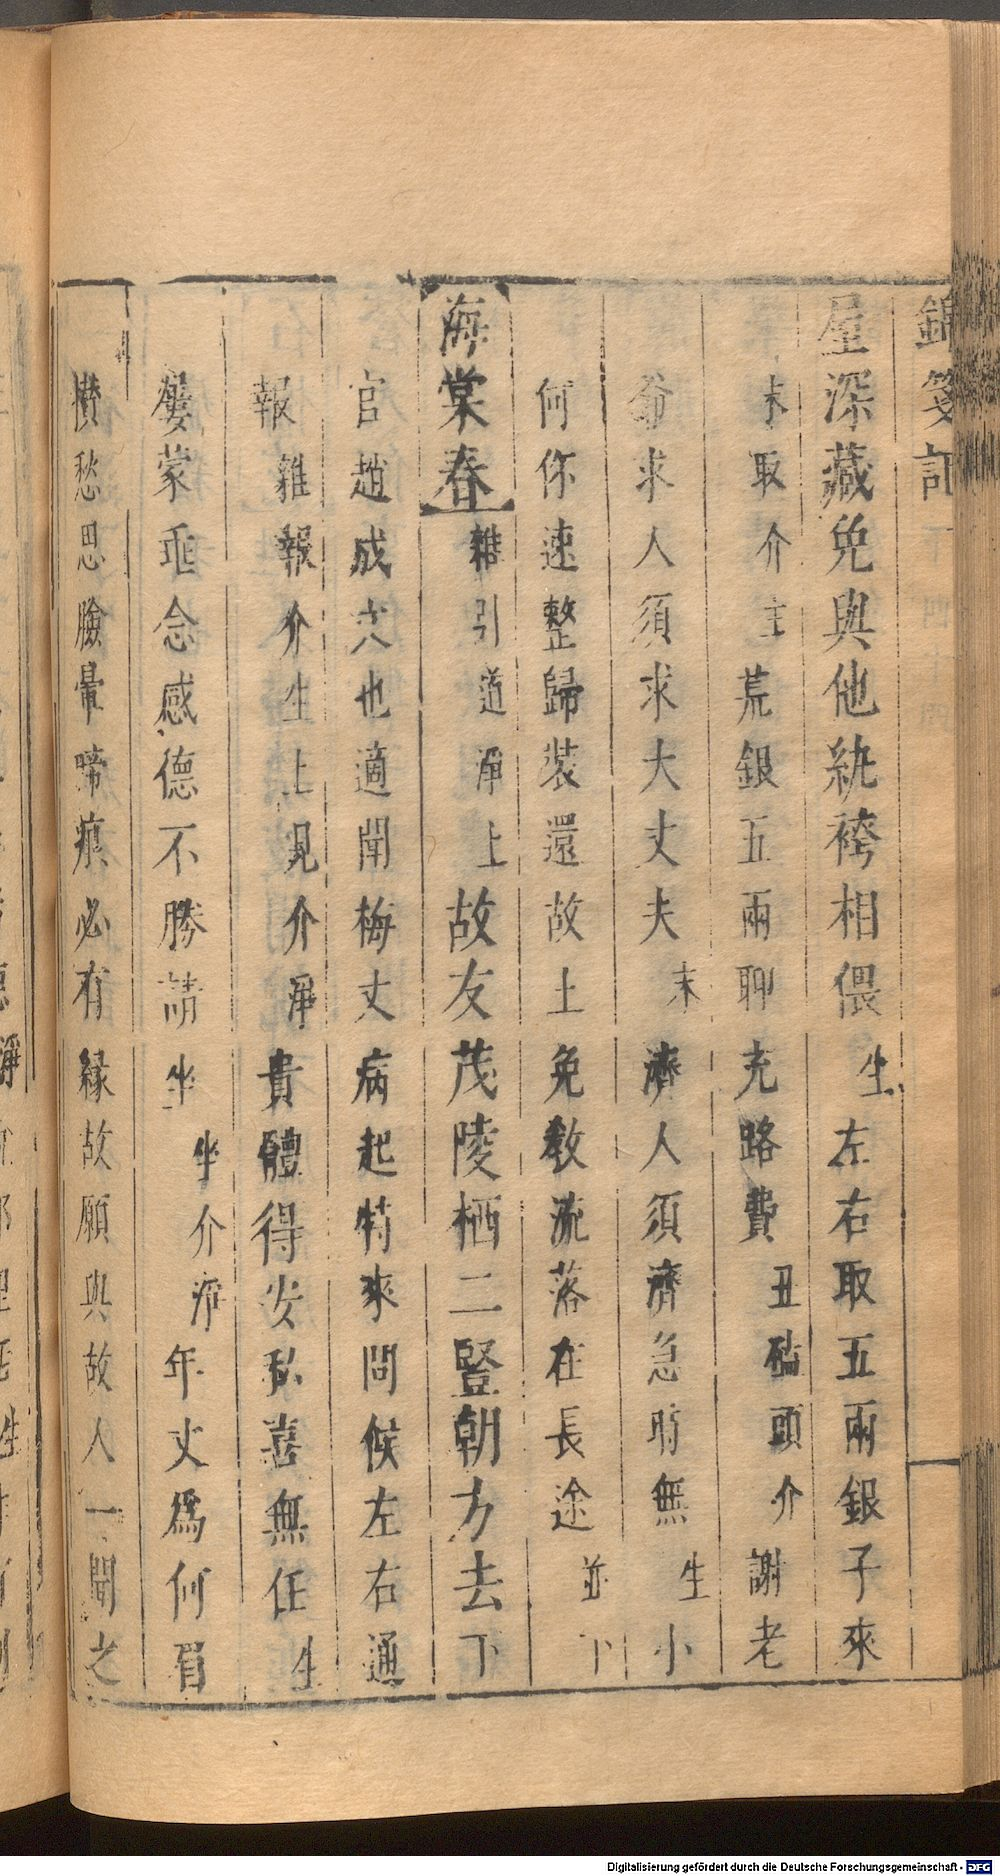 錦箋記
屋深藏免與他紈袴相偎生左右取五兩銀子來
末取介生荒銀五兩聊充路費丑磕頭介謝老
爺求人須求大丈夫末濟人須濟急時無生小
何你速整歸裝還故土免教流落在長途並下
海棠春雜引道淨上故友茂陵栖二豎朝方去下
官趙成大也適聞梅丈病起特來問候左右通
報雜報介生上見介淨貴體得安私喜無任生
屢蒙垂念感德不勝請坐坐介淨年丈爲何眉
攢愁思臉暈啼痕必有緣故願與故人一聞之
Digitalisierung gefördert durch die Deutsche Forschungsgemeinschaft - DFG